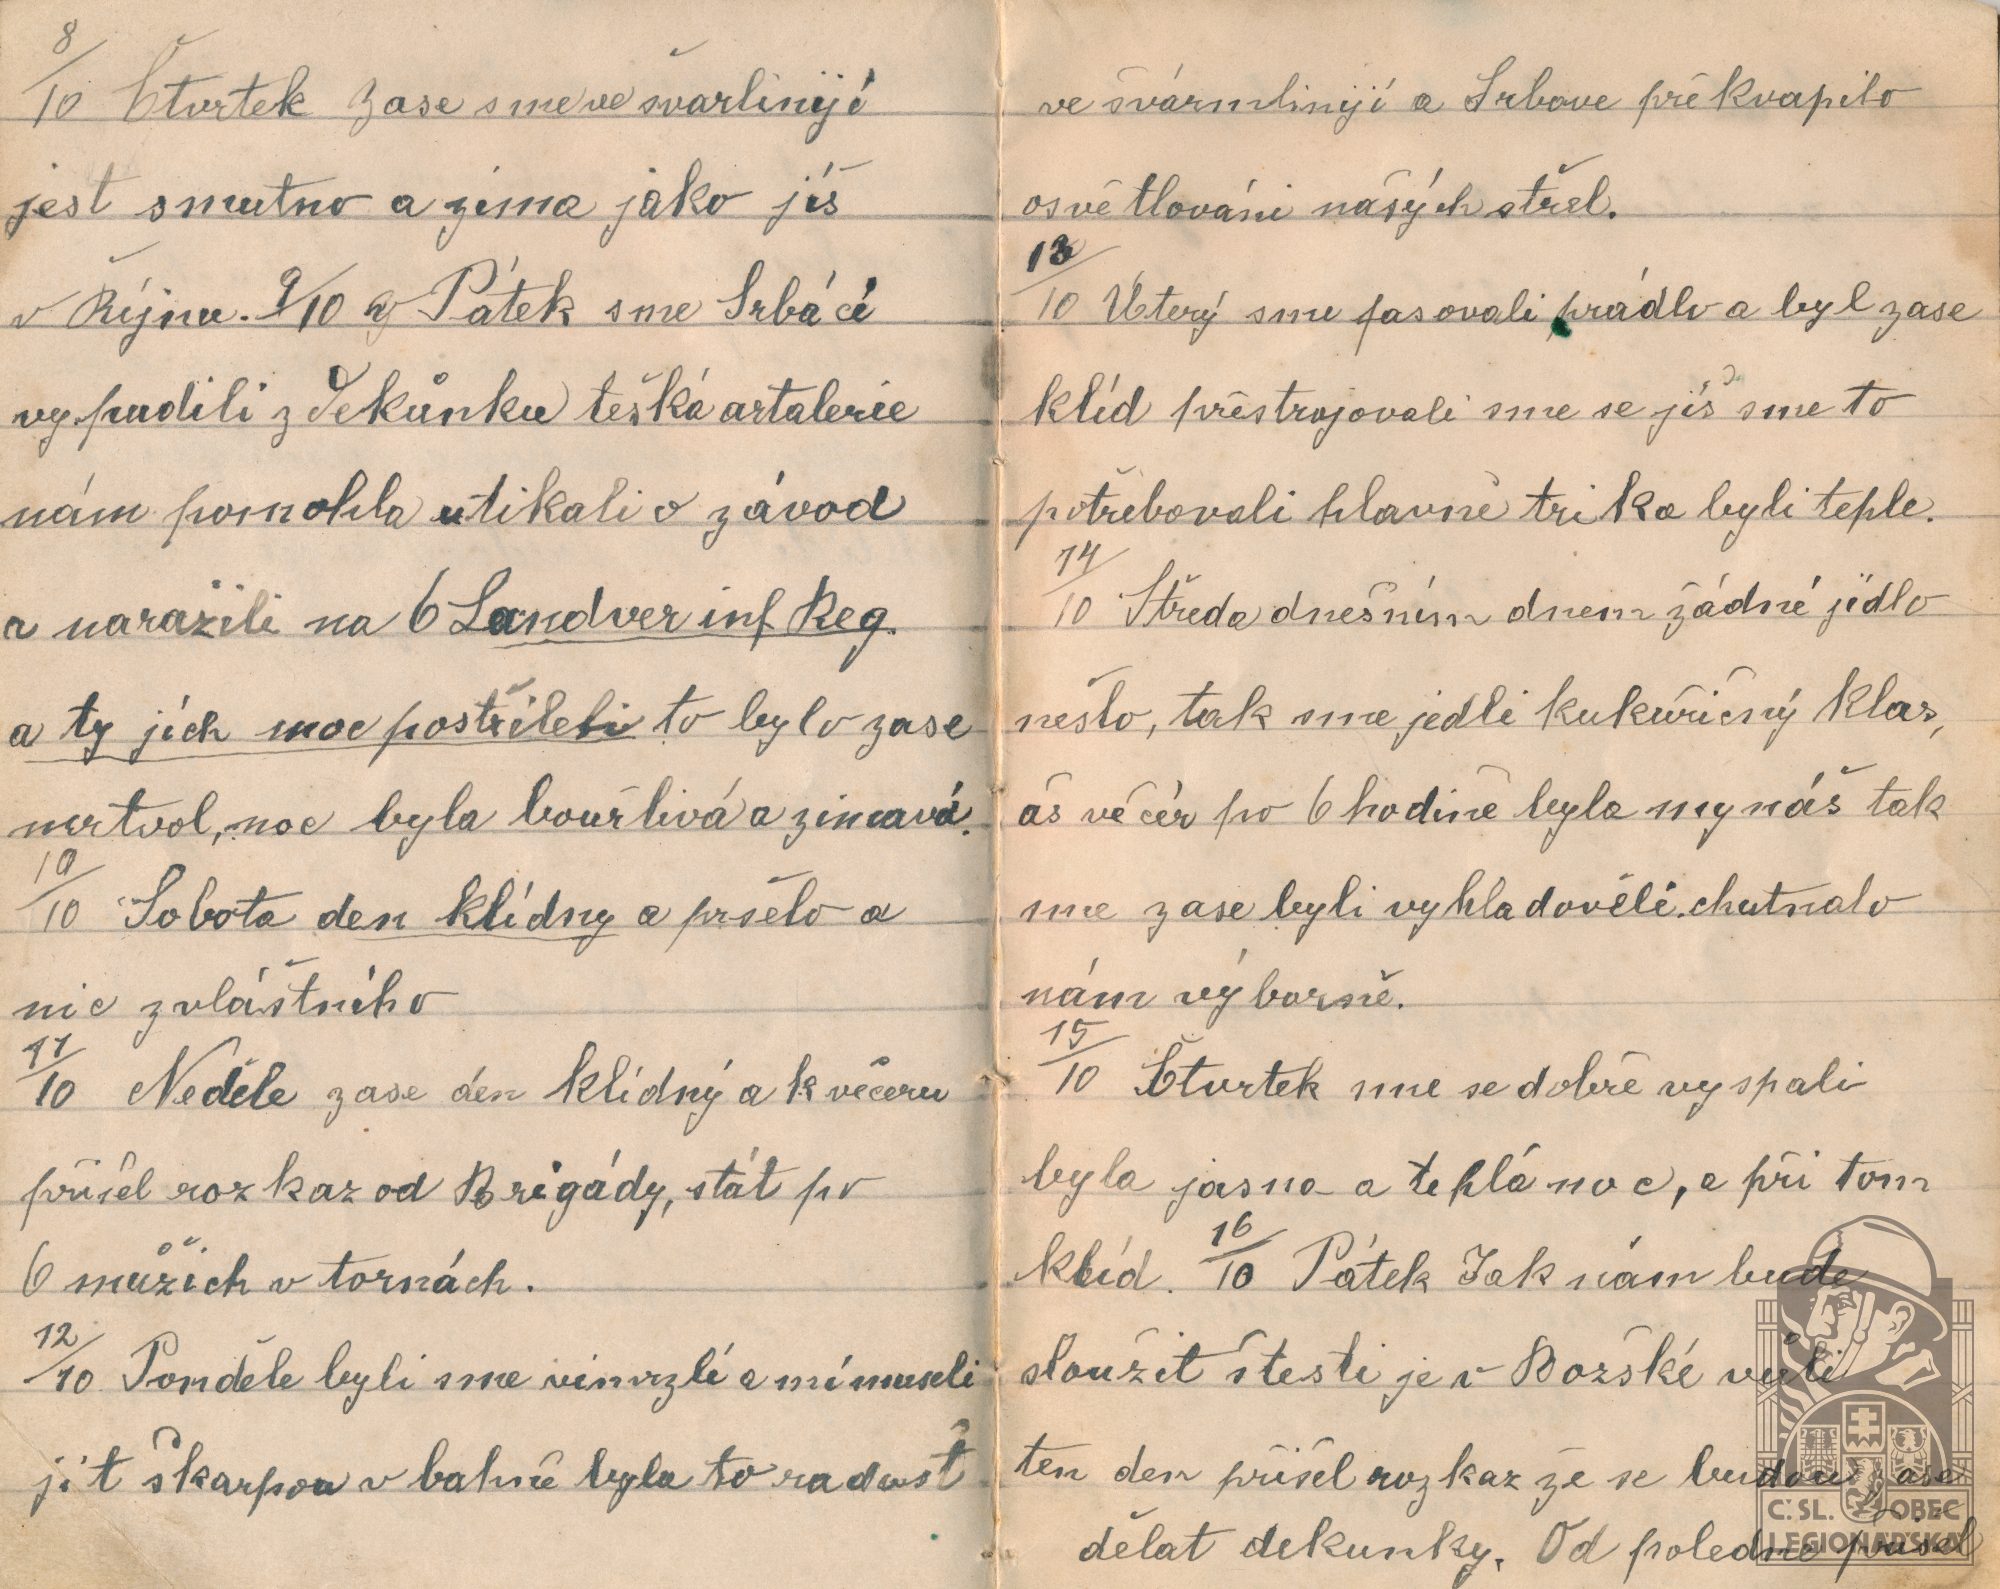 8/10 Čtvrtek zase sme ve švarlinijí
jest smutno a zima jako jíš
v Říjnu. 9/10 Pátek sme Srbáčí
vypudili z Dekůnku tešká artalerie
nám pomohla utikali o závod
a narazili na 6 Landver inf Reg.
a ty jích moc postříleli to bylo zase
mrtvol, noc byla bouřlivá a zimavá.
10/10 Sobota den klídny a pršelo a
nic zvláštního
11/10 Neděle zase den klídný a k večeru
přišel rozkaz od Brigády, stát po
6 mužích v tornách.
12/10 Ponděle byli sme vimrzlí a mí museli
jít škarpou v bahně byla to radost
ve švármlinijí a Srbove překvapilo
osvětlováni nášých střel.
13/10 Úterý sme fasovali prádlo a byl zase
klíd přestrojovali sme se jíš sme to
potřebovali hlavně trika byli teple.
14/10 Středa dnešním dnem žádné jídlo
nešlo, tak sme jedli kukuřičný klas,
áš véčér po 6 hodině byla mynáš tak
sme zase byli vyhladovělí. chutnalo
nám výborně.
15/10 Čtvrtek sme se dobře vyspali
byla jasna a teplá noc, a při tom
klíd. 16/10 Pátek Jak nám bude
sloužit štesti je v Božské vuli
ten den přišel rozkaz že se budou zase
dělat dekunky. Od poledne přišel
Č.SL. OBEC
LEGIONÁŘSKÁ